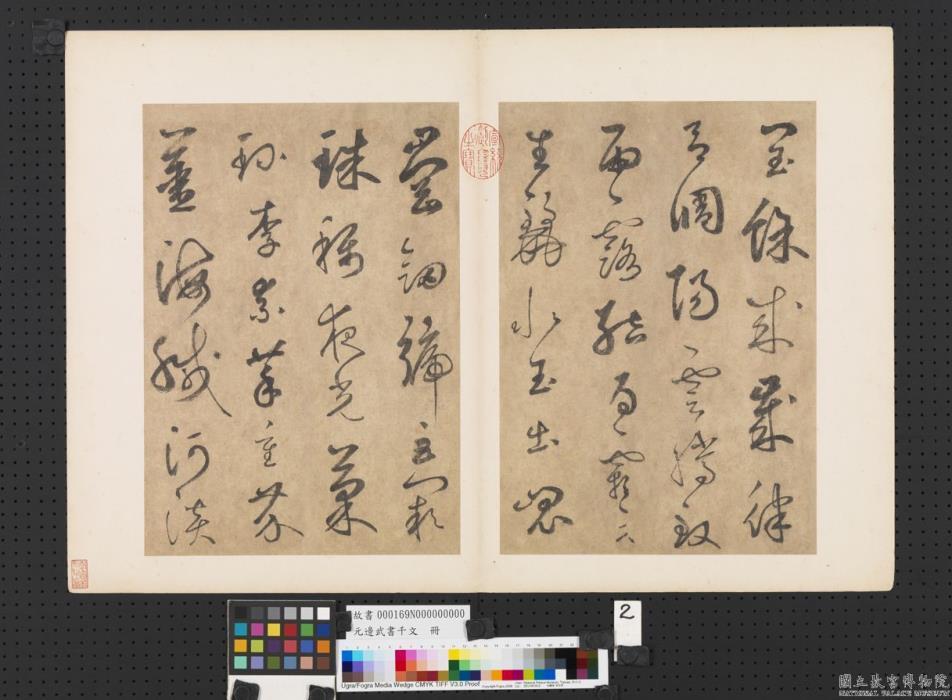 閏餘成歲律
呂調陽雲騰致
雨露結為霜金
生麗水玉出崑
岡劍號巨闕
珠稱夜光菓
珍李柰菜重芥
薑海鹹河淡
故書 000169N000000000
元邊武書千文 冊
2
Ugra/Fogra Media Wedge CMYK TIFF V3.0 Proof
國立故宮博物院
NATIONAL PALACE MUSEUM